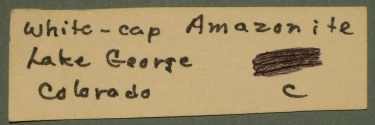 White-cap Amazonite
Lake George
Colorado C